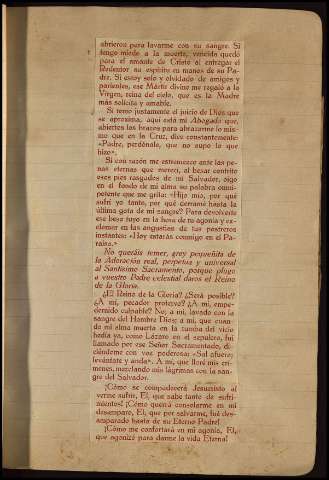 abrieron para lavarme con su sangre. Si
tengo miedo a la muerte, vencida quedó
para el amante de Cristo al entregar el
Redentor su espíritu en manos de su Pa-
dre. Si estoy solo y olvidado de amigos y
parientes, ese Mártir divino me regaló a la
Virgen, reina del cielo, que es la Madre
más solícita y amable.
Si temo justamente el juicio de Dios que
se aproxima, aquí está mi Abogado que,
abiertos los brazos para abrazarme lo mis-
mo que en la Cruz, dice constantemente:
«Padre, perdónale, que no supo lo que
hizo».
Si con razón me estremezco ante las pe-
nas eternas que merecí, al besar contrito
esos pies rasgados de mi Salvador, oigo
en el fondo de mi alma su palabra omni-
potente que me grita: «Hijo mío, por qué
sufrí yo tanto, por qué derramé hasta la
última gota de mi sangre? Para devolverte
ese beso tuyo en la hora de tu agonía y ex-
clamar en las angustias de tus postreros
instantes: «Hoy estarás conmigo en el Pa-
raíso.»
No queráis temer, grey pequeñita de
la Adoración real, perpetua y universal
al Santísimo Sacramento, porque plugo
a vuestro Padre celestial daros el Reino
de la Gloria.
¿El Reino de la Gloria? ¿Será posible?
¿A mí, pecador protervo? ¿A mí, empe-
dernido culpable? No; a mí, lavado con la
sangre del Hombre Dios; a mí, que cuan-
do mi alma muerta en la tumba del vicio
hedía ya, como Lázaro en el sepulcro, fuí
llamado por ese Señor Sacramentado, di-
ciéndome con voz poderosa: «Sal afuera;
levántate y anda». A mí, que lloré mis crí-
menes, mezclando mis lágrimas con la san-
gre del Salvador.
¡Cómo se compadecerá Jesucristo al
verme sufrir, El, que sabe tanto de sufri-
mientos! ¡Cómo querrá consolarme en mi
desamparo, El, que por salvarme, fué des-
amparado hasta de su Eterno Padre!
¡Cómo me confortará en mi agonía, El,
que agonizó para darme la vida Eterna!